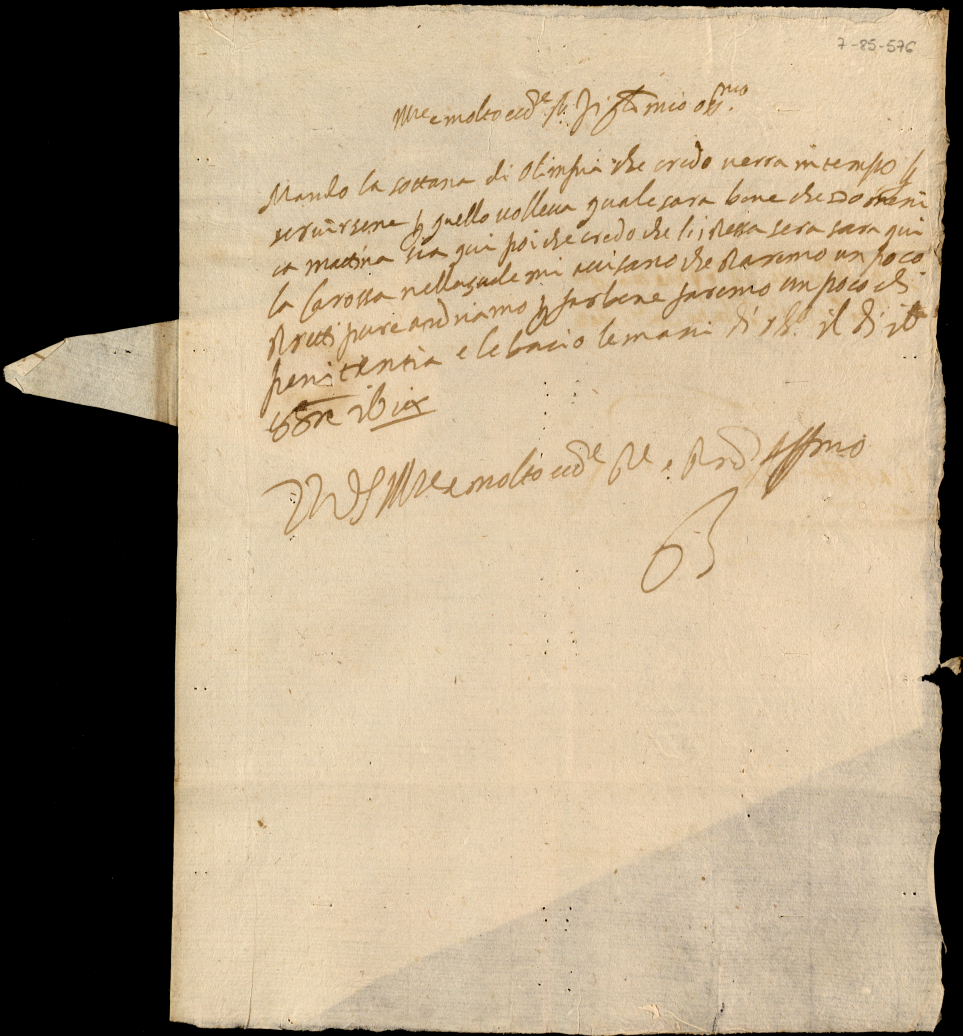 7-85-576
Ill.re e molto ecc.te Sig. mio oss.mo
Mando la sottana di olimpia che credo verra in tempo p
servirsene p quello volleva quale sara bene che domeni
ca matina sia qui poi che credo che li stessa sera sara qui
la Carossa nella quale mi avisano che staremo un poco
stretti pure andiamo p far bene faremo un poco di
penitentia e le bacio le mani di il di
8bre
D V S Ill.re e molto ecc.te e aff.mo